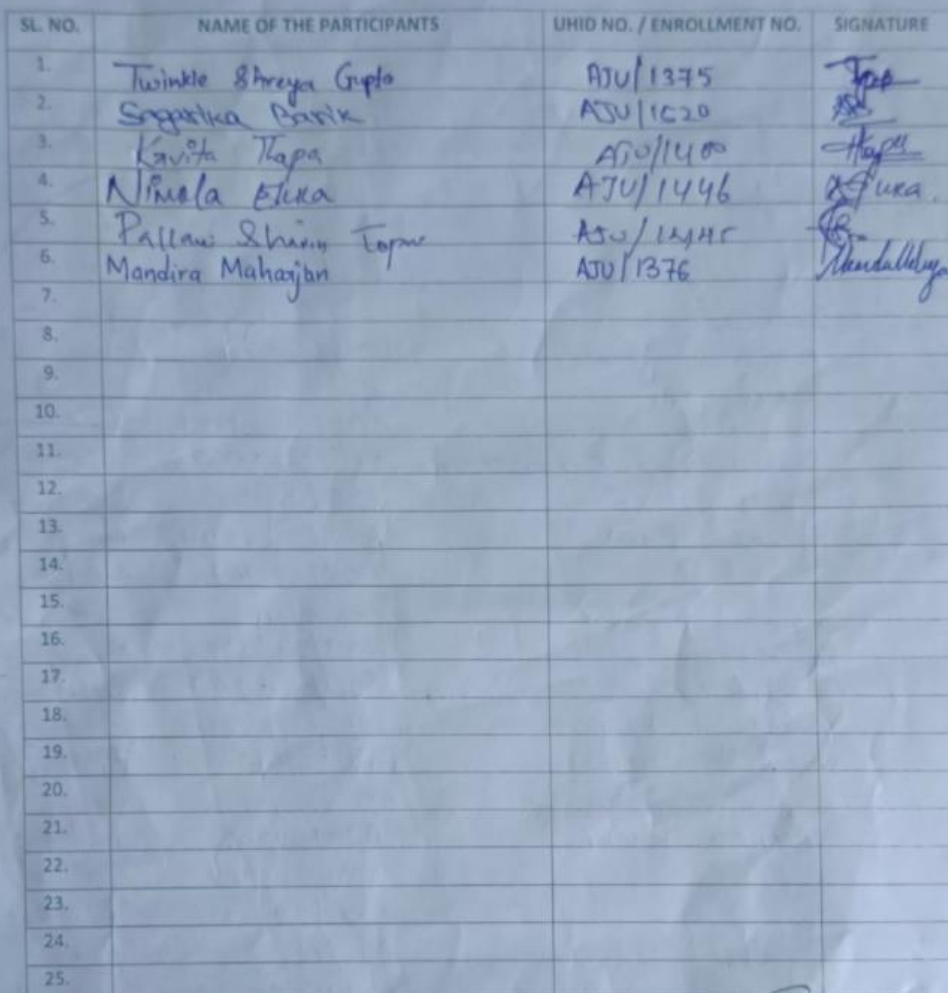 SL. NO. NAME OF THE PARTICIPANTS UHID NO. / ENROLLMENT NO. SIGNATURE
1. Twinkle Shreya Gupta AJU/1375
2. Sagarika Barik AJU/1520
3. Kavita Thapa AJU/1400
4. Nimala Ekka AJU/1446
5. Pallavi Shirin Topno
6. Mandira Maharjan AJU/1376
7.
8.
9.
10.
11.
12.
13.
14.
15.
16.
17.
18.
19.
20.
21.
22.
23.
24.
25.